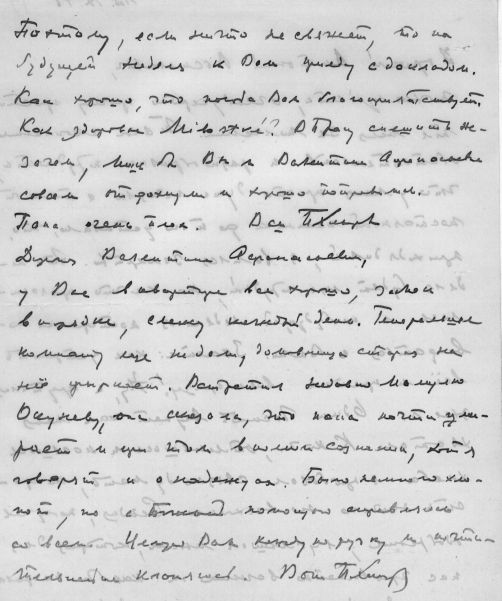 Поэтому, если ничто не свяжет, то на
будущей неделе к Вам приеду с докладом.
Как хорошо, что погода Вам благоприятствует.
Как здоровье спешить не-
зачем, лишь бы Вы и Валентина Афанасьевна
совсем отдохнули и хорошо поправились.
Папа очень плох. Ваш
Дорогая Валентина Афанасьевна,
у Вас в квартире все хорошо, замок
в порядке, слежу каждый день. Генеральше
комнату еще не дали, домовница старая на
неё фыркает. Встретил недавно
Окуневу, она сказала, что папа почти уми-
рает и при том в полном сознании, хотя
говорят и о надежде. Было немного хло-
пот, но с Божьей помощью справляюсь
со всем. Целую Вам ручку и почти-
тельнейше кланяюсь. Ваш